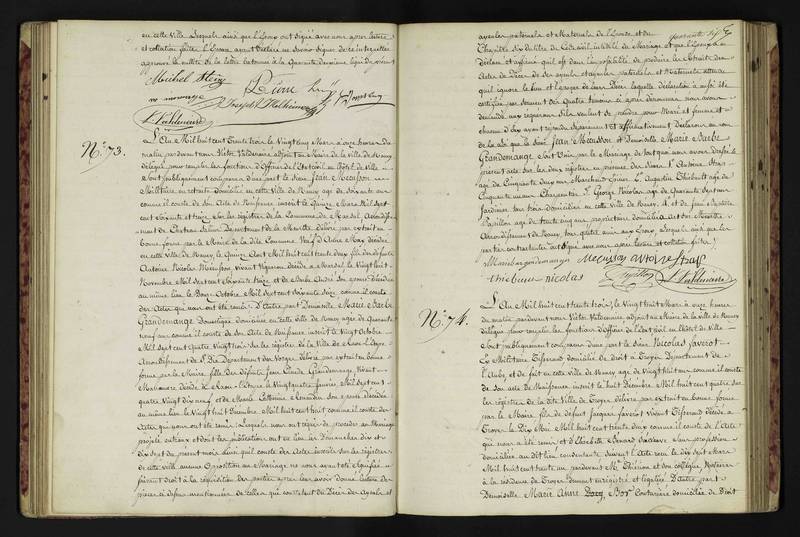 en cette Ville Lesquels ainsi que l'Epoux ont signé avec nous après lecture
et collation faite, l'Epouse ayant Déclaré ne savoir signer de ce interpellée
Michel
Joseph
N.° 73.
L'An Mil huit cent Trente trois le Vingt cinq Mars à onze heures du
matin par devant nous Victor Valdenaire adjoint au Maire de la Ville de Nancy
délégué pour remplir les fonctions d'Officier de l'Etat civil en l'hôtel de Ville
a été publiquement comparu d'une part le Sieur Jean Meusson
Militaire en retraite domicilié en cette Ville de Nancy agé de Soixante ans
comme il conste de son Acte de Naissance inscrit le Quinze Mars Mil Sept
cent Soixante et treize sur les registres de la Commune de Marsal Arrondisse-
ment de Château Salins Département de la Meurthe délivré par extrait en
bonne forme par le Maire de la dite Commune Veuf d'
en cette Ville de Nancy le Quinze Août Mil huit cent trente deux fils des défunts
Antoine Nicolas Meusson, vivant Vigneron décédé à Marsal le Vingt huit
Novembre Mil Sept cent Soixante treize et de Barbe André son épouse décédée
au même lieu le Douze Octobre Mil Sept cent Soixante seize comme il conste
des Actes qui nous ont été remis d'Autre part Demoiselle Marie Barbe
Grandemange Domestique domiciliée en cette ville de Nancy agée de Quarante
neuf ans comme il conste de son Acte de Naissance inscrit le Vingt Octobre
Mil Sept cent Quatre Vingt trois sur les registres de la Ville de Raon l'Etape
Arrondissement de St. Dié Département des Vosges délivré par extrait en bonne
forme par le Maire, fille des défunts Jean Claude Grandemange, vivant
Manoeuvre décédé à Raon l'Etape le Vingt quatre Janvier Mil Sept cent
quatre Vingt dix neuf et de Marie Catherine son épouse décédée
au même lieu le Vingt huit Décembre Mil huit cent huit comme il conste des
Actes qui nous ont été remis Lesquels nous ont requis de procéder au Mariage
projeté entr'eux et dont les publications ont eu lieu les Dimanches dix et
dix sept du présent mois ainsi qu'il conste des Actes inscrits sur les registres
de cette ville aucune Opposition au Mariage ne nous ayant été signifiée
faisant droit à la réquisition des parties après leur avoir donné lecture des
pièces ci dessus mentionnées de celles qui constatent du Décès des Ayeuls et
quarante
ayeules paternels et Maternels de l'Epoux et du
Chapitre Six du titre du Code civil intitulé du Mariage et que l'Epoux a
Déclaré et affirmé qu'il est dans l'impossibilité de produire les extraits des
Actes de Décès de ses ayeuls et ayeules paternels et Maternels attendu
qu'il ignore le lieu et l'époque de leurs Décès laquelle déclaration a aussi été
certifiée par serment des Quatre témoins ci après dénommés nous avons
demandé aux requérans s'ils veulent se prendre pour Mari et femme et
chacun d'eux ayant répondu séparément et affirmativement Déclarons au nom
de la loi que le Sieur Jean Meusson et Demoiselle Marie Barbe
Grandemange sont Unis par le Mariage de tout quoi nous avons dressé le
présent acte sur les deux registres en présence des Sieurs 1.° Antoine Stras
agé de Cinquante Deux ans Marchand 2.° Augustin Thiebaut agé de
Cinquante un ans Charpentier 3.° George Nicolas agé de Quarante Sept ans
Jardinier tous trois domiciliés en cette Ville de Nancy, 4.° et de Jean Baptiste
Papillon agé de trente cinq ans propriétaire domicilié
Arrondissement de Nancy tous quatre amis aux Epoux Lesquels ainsi que les
parties contractantes ont signé avec nous après lecture et collation faites
Marie barbe grandemange Meusson antoine stras
thiebaut nicolas Papillon V. Valdenaire
N.° 74.
L'An Mil huit cent trente trois, le Vingt huit Mars à onze heures
du matin pardevant nous Victor Valdenaire adjoint au Maire de la ville de Nancy
délégué pour remplir les fonctions d'Officier de l'Etat civil en l'hôtel de Ville
a été publiquement comparu d'une part le Sieur Nicolas Favrot
Ex Militaire Tisserand domicilié de droit à Troyes Département de
l'Aube et de fait en cette ville de Nancy agé de Vingt huit ans comme il conste
de son acte de Naissance inscrit le huit Décembre Mil huit cent quatre sur
les registres de la dite Ville de Troyes délivré par extrait en bonne forme
par le Maire fils de défunt Jacques Favrot vivant Tisserand décédé à
Troyes le Dix Mai Mil huit cent trente deux comme il conste de l'Acte
qui nous a été remis et d'Elisabeth Benard sa Veuve sans profession
domiciliée au dit lieu consentante suivant l'Acte reçu le dix sept Mars
Mil huit cent trente trois par devant M.e Thierion et son collègue, Notaires
à la résidence de Troyes dûment enregistré et légalisé D'autre part
Demoiselle Marie Anne Couturière domiciliée de Droit